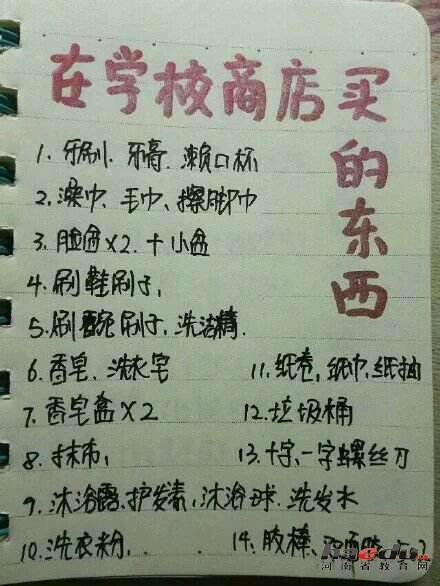 在学校商店买
的东西
1. 牙刷、牙膏、濑口杯
2. 澡巾、毛巾、擦脚巾
3. 脸盆×2. + 小盆
4. 刷鞋刷子,
5. 刷碗刷子, 洗洁精.
6. 香皂, 洗衣皂
7. 香皂盒×2
8. 抹布,
9. 沐浴露, 护发素, 沐浴球. 洗发水
10. 洗衣粉.
11. 纸卷, 纸巾, 纸抽
12. 垃圾桶
13. 十字、一字螺丝刀
14. 胶棒、
河南省教育网